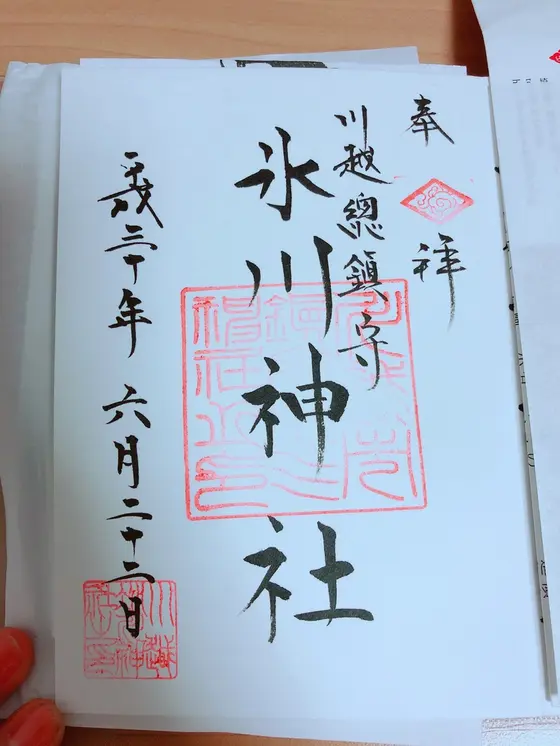 奉拝
川越總鎮守
氷川神社
平成三十年 六月二十二日